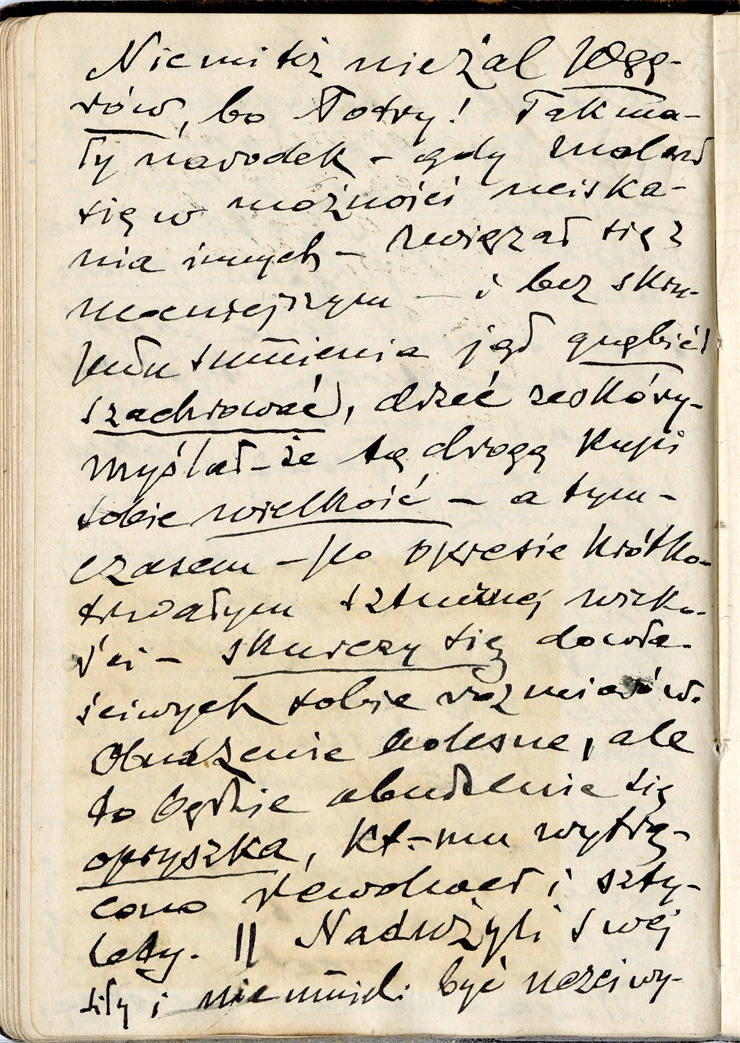 Nie mi też nie żal Węg-
rów, bo Łotry! Tak ma-
ły narodek – gdy znalazł
się w możności uciska-
nia innych – związał się z
mocniejszym – i bez skru-
pułu sumienia jął gnębić,
szachrować, drzeć ze skóry –
myślał – że tą drogą kupi
sobie wielkość – a tym-
czasem – po okresie krótko-
trwałym sztucznej wielko-
ści – skurczy się do wła-
ściwych sobie rozmiarów.
Obudzenie bolesne, ale
to będzie obudzenie się
opryszka, kt-mu wytrą-
cono rewolwer i szty-
lety. || Nadużyli swej
siły i nie umieli być uczciwy-